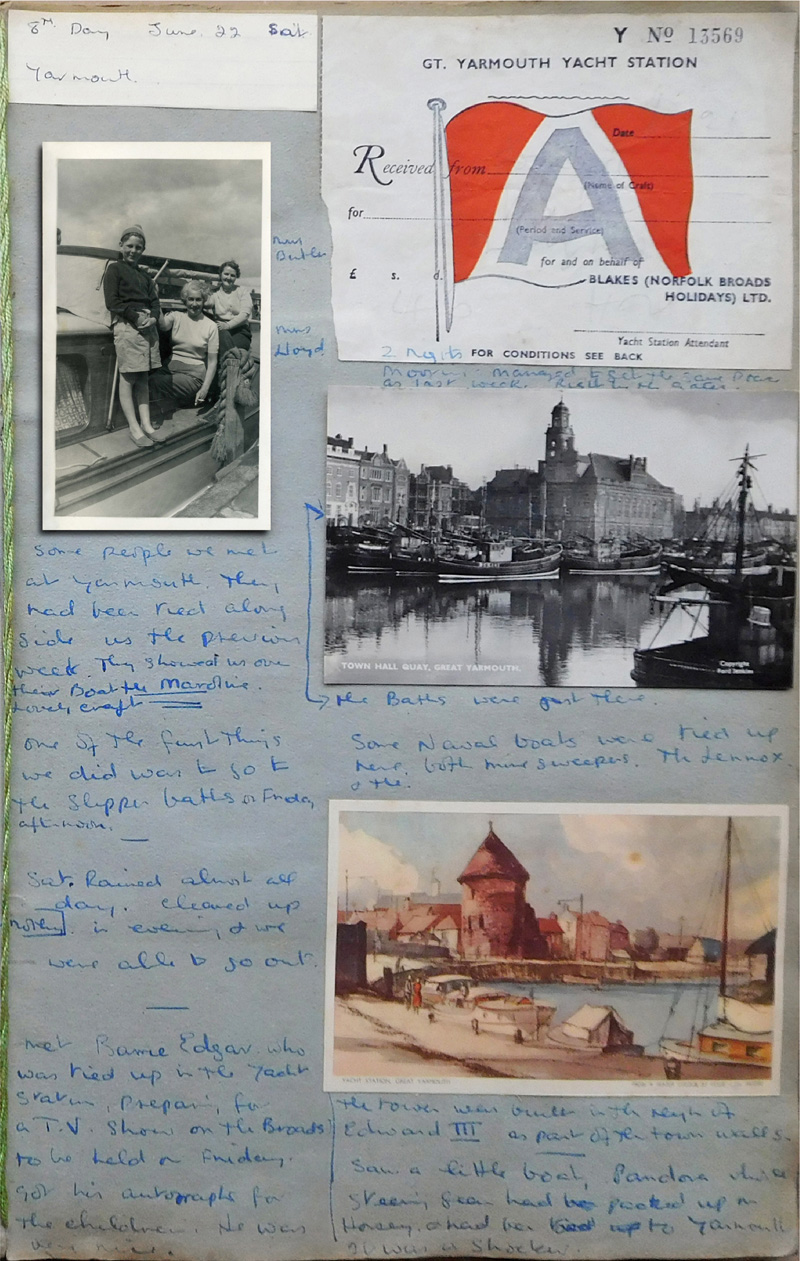 8TH Day June. 22 Sat
Yarmouth.
Y No 13569
GT. YARMOUTH YACHT STATION
A
Date
Received from
(Name of Craft)
for
(Period and Service)
for and on behalf of
£ s. d.
BLAKES (NORFOLK BROADS
HOLIDAYS) LTD.
Yacht Station Attendant
FOR CONDITIONS SEE BACK
2 Nights
Mooring. Managed to get the same place
as last week. Right by the
Mrs
Butler
Mrs
Lloyd
Some people we met
at Yarmouth. They
had been tied along
side us the previous
week. They showed us over
their Boat the
Lovely craft
One of the first things
we did was to go to
the slipper baths on Friday
afternoon.
Sat. Rained almost all
day. Cleared up
in evening & we
were able to go out.
Met Barrie Edgar who
was tied up in the Yacht
Station, preparing for
a T.V. Show on the Broads
to be held on Friday.
Got his autographs for
the children. He was
very nice.
TOWN HALL QUAY, GREAT YARMOUTH.
Copyright
the Baths were just there.
Some Naval boats were tied up
here, both mine sweepers. The Lennox
& the.
YACHT STATION, GREAT YARMOUTH
The tower was built in the reign of
Edward III as part of the town walls.
Saw a little boat, Pandora whose
steering gear had packed up on
Horsey, & had to Yarmouth
It was a shocker.